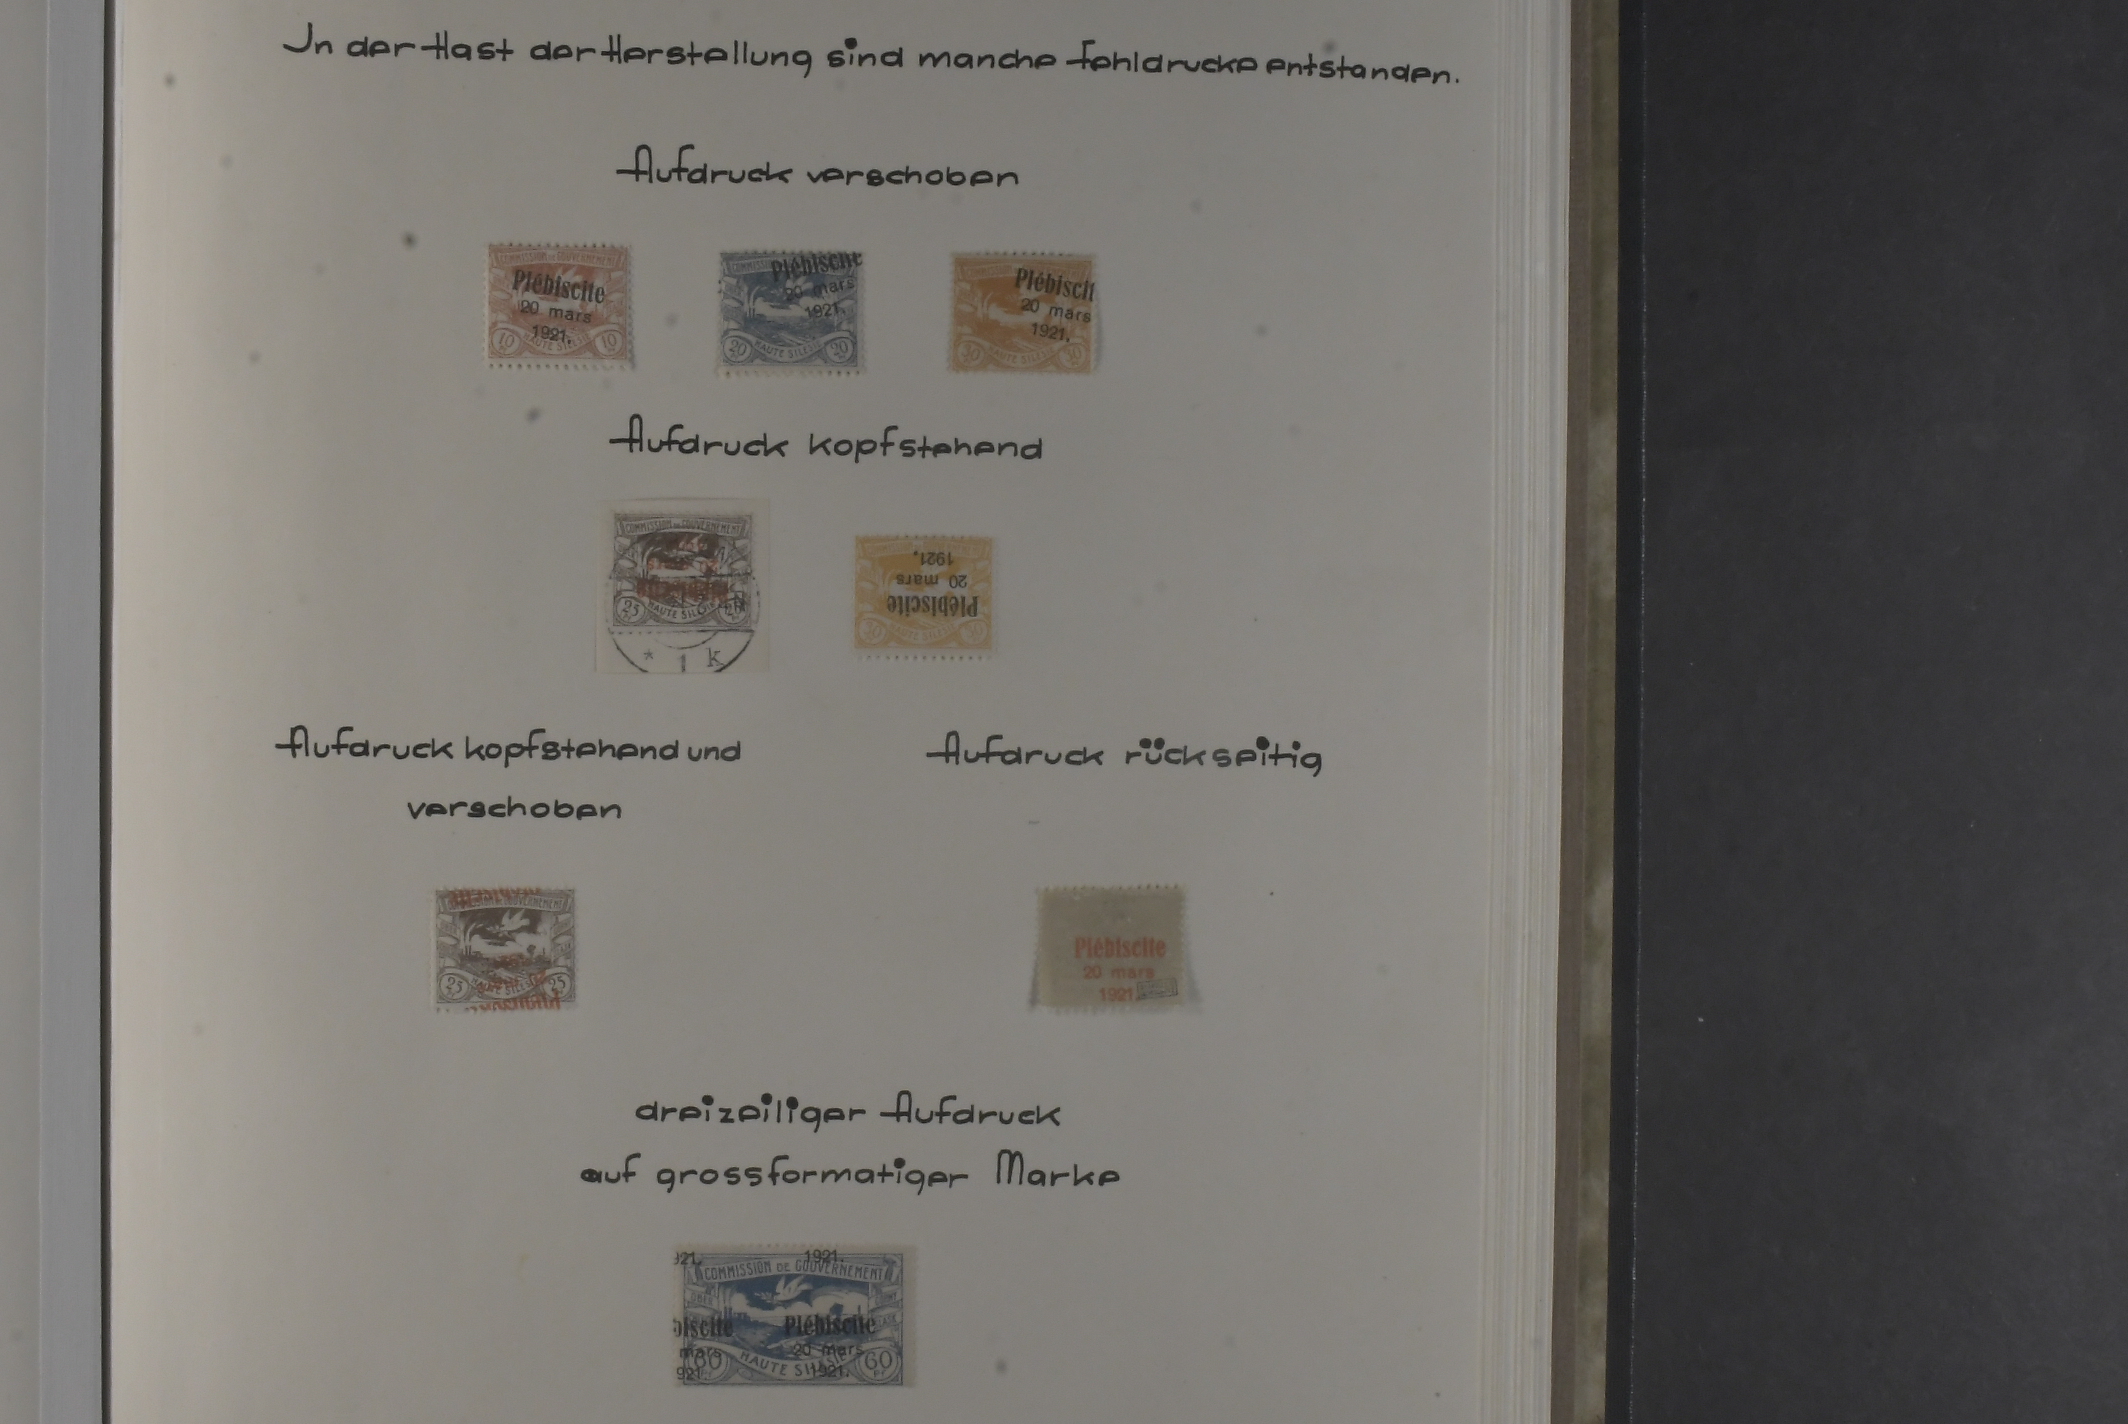 In der Hast der Herstellung sind manche Fehldrucke entstanden.
Aufdruck verschoben
COMMISSION DE GOUVERNEMENT
Plébiscite
20 mars
1921.
10 HAUTE SILESIE 10
COMMISSION
Plébiscite
20 mars
1921.
20 HAUTE SILESIE 20
Plébiscit
20 mars
1921.
30 HAUTE SILESIE 30
Aufdruck kopfstehend
COMMISSION DE GOUVERNEMENT
25 HAUTE SILESIE 25
* 1 k
1921.
20 mars
Plébiscite
30 HAUTE SILESIE 30
Aufdruck kopfstehend und
verschoben
Aufdruck rückseitig
GOUVERNEMENT
25 25
Plébiscite
20 mars
1921
dreizeiliger Aufdruck
auf grossformatiger Marke
921. 1921.
COMMISSION DE GOUVERNEMENT
biscite Plébiscite
mars 20 mars
60 HAUTE SILESIE 60
921. 1921.